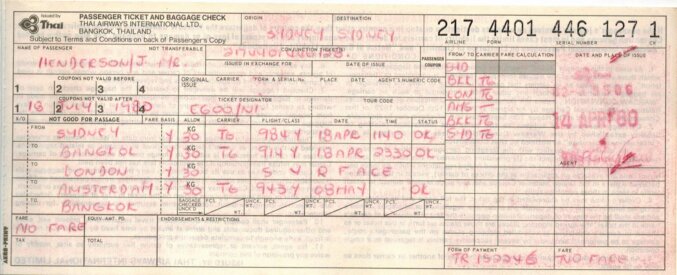 Issued by
Thai
PASSENGER TICKET AND BAGGAGE CHECK
THAI AIRWAYS INTERNATIONAL LTD.,
BANGKOK, THAILAND
Subject to Terms and Conditions on back of Passenger's Copy
ORIGIN DESTINATION
SYDNEY SYDNEY
217 4401 446 127 1
AIRLINE FORM SERIAL NUMBER CK
NAME OF PASSENGER NOT TRANSFERABLE
HENDERSON/J. MR.
CONJUNCTION TICKET(S)
ISSUED IN EXCHANGE FOR DATE OF ISSUE
PASSENGER COUPON
FROM/TO CARRIER FARE CALCULATION
DATE AND PLACE OF ISSUE
COUPONS NOT VALID BEFORE
1 2 3 4
ORIGINAL ISSUE CARRIER FORM & SERIAL No. PLACE DATE AGENT'S NUMERIC CODE
COUPONS NOT VALID AFTER
1 2 3 4
18 JULY 1980
TICKET DESIGNATOR TOUR CODE
X/O NOT GOOD FOR PASSAGE FARE BASIS ALLOW CARRIER FLIGHT/CLASS DATE TIME STATUS
FROM SYDNEY Y KG 30 TG 984Y 18APR 1140 OK
TO BANGKOK Y KG 30 TG 914Y 18APR 2330 OK
TO LONDON Y KG 30 S U R F A C E
TO AMSTERDAM Y KG 30 TG 943Y 08MAY OK
TO BANGKOK
BAGGAGE CHECKED UNCK'D PCS. WT. UNCK. WT. PCS. WT. UNCK. WT. PCS. WT. UNCK. WT. PCS. WT. UNCK. WT.
SYD
BKK TG
LON TG
AMS –
BKK TG
SYD TG
14 APR 80
AGENT
FARE EQUIV. AMT. PD. ENDORSEMENTS & RESTRICTIONS
NO FARE
TAX TOTAL
FORM OF PAYMENT FARE
NO FARE